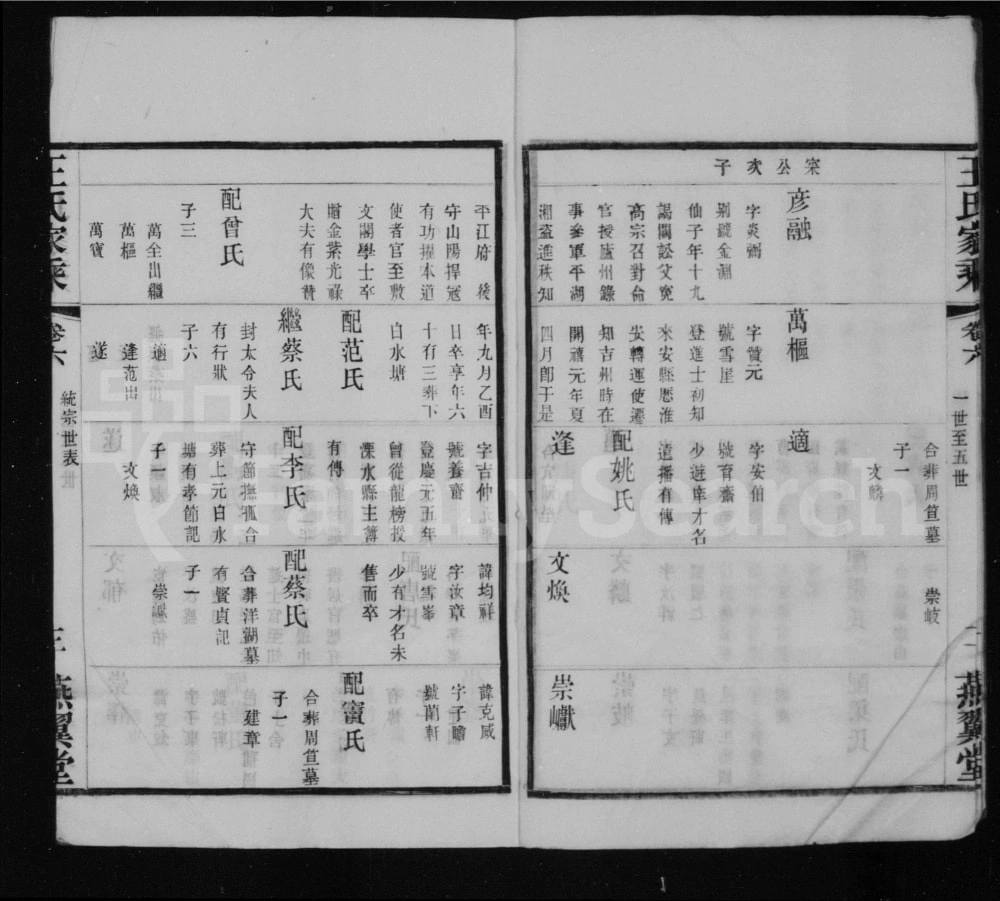 王氏家乘
卷六
一世至五世
二
燕翼堂
宷公次子
彦融
字炎弼
别號金淵
仙子年十九
謁闕訟父寃
高宗召對命
官授廬州錄
事參軍平湖
湘盗進秩知
平江府後
守山陽捍冦
有功擢本道
使者官至敷
文閣學士卒
贈金紫光祿
大夫有像贊
配曾氏
子三
萬全出繼
萬樞
萬寶
萬樞
字贊元
號雪崖
登進士初知
來安縣厯淮
安轉運使遷
知吉州時在
開禧元年夏
四月卽于是
年九月乙酉
日卒享年六
十有三葬下
白水塘
配范氏
繼蔡氏
封太令夫人
有行狀
子六
適
逢范出
遂
合葬周笪墓
子一
文麟
適
字安伯
號育齋
少遊庠才名
遠播有傳
配姚氏
逢
字吉仲
號養齋
登慶元五年
曾從龍榜授
溧水縣主簿
有傳
配李氏
守節撫孤合
葬上元白水
塘有孝節記
子一
文煥
崇岐
文煥
諱均祥
字汝章
號雪峯
少有才名未
售而卒
配蔡氏
合葬洋湖墓
有賢貞記
子一
崇巘
崇巘
諱克咸
字子瞻
號蘭軒
配竇氏
合葬周笪墓
子一
建章
王氏家乘
卷六
統宗世表
三
燕翼堂
FamilySearch